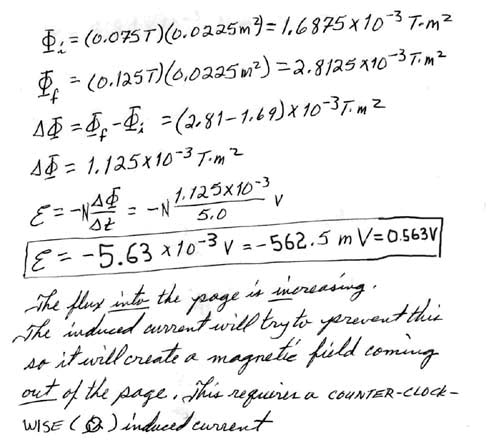 Φi = (0.075T)(0.0225m²) = 1.6875 x 10⁻³ T·m²
Φf = (0.125T)(0.0225m²) = 2.8125 x10⁻³ T·m²
ΔΦ = Φf - Φi = (2.81-1.69) x 10⁻³ T·m²
ΔΦ = 1.125 x 10⁻³ T·m²
ε = -N ΔΦ/Δt = -N 1.125x10⁻³/5.0 V
ε = -5.63 x 10⁻³ V = -562.5 m V = 0.563V
The flux into the page is increasing.
The induced current will try to prevent this
so it will create a magnetic field coming
out of the page. This requires a COUNTER-CLOCK-
WISE (↺) induced current